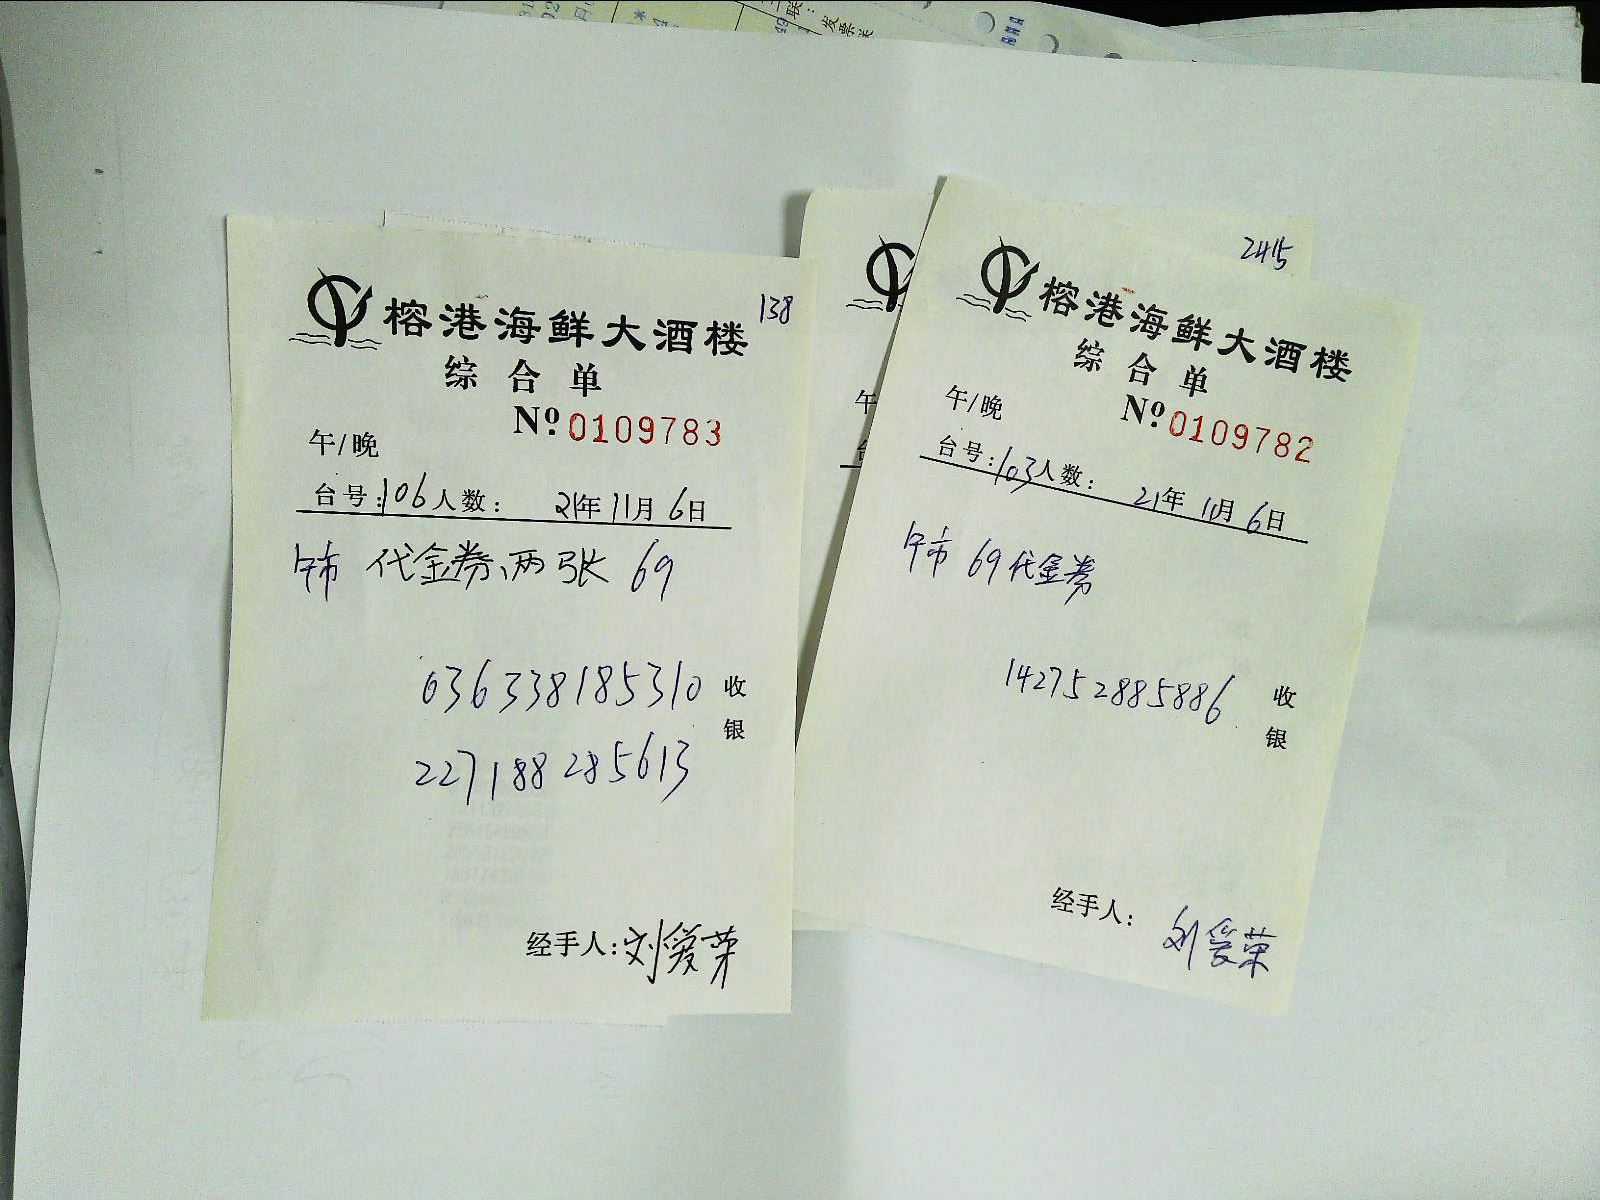 138
榕港海鲜大酒楼
综合单
№ 0109783
午/晚
台号: 106 人数: 21年 11月 6日
午市 代金券、两张 69
036338185310
227188285613
收银
经手人: 刘爱荣
2415
榕港海鲜大酒楼
综合单
№ 0109782
午/晚
台号: 103 人数: 21年 11月 6日
午市 69代金券
142752885886
收银
经手人: 刘爱荣
午
联: 发票